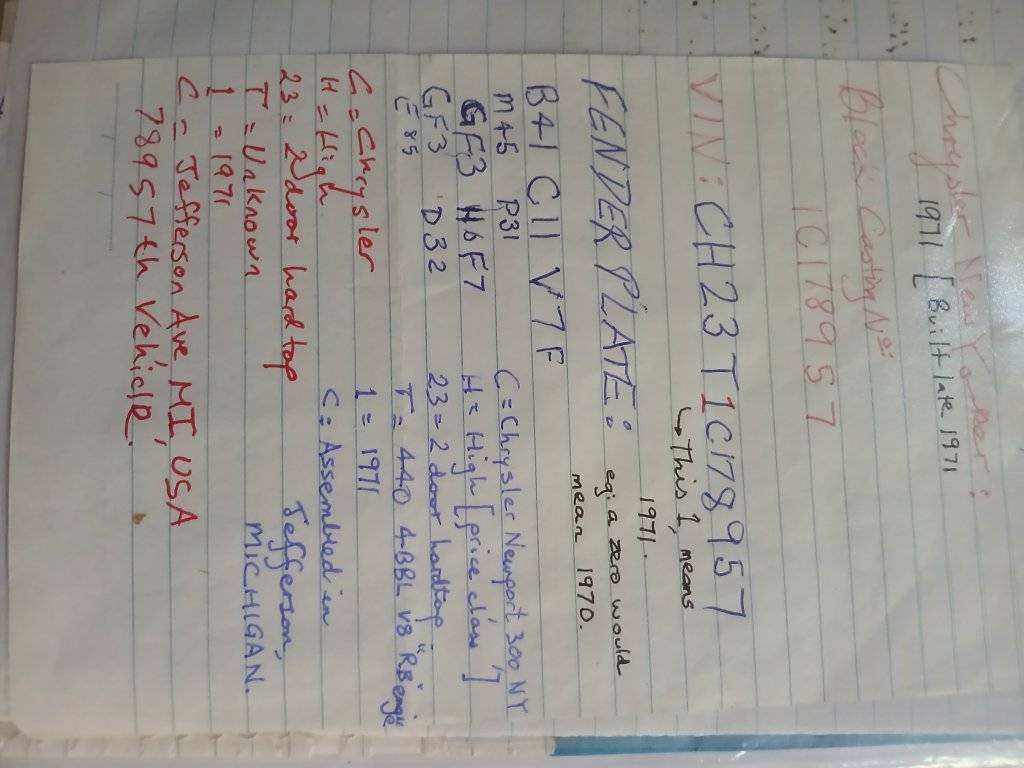 Chrysler New Yorker:
1971 [Built late 1971
Block Casting No:
1C178957
VIN: CH23T1C178957
↳ This 1, means
1971.
FENDER PLATE:
eg: a zero would
mean 1970.
B41 C11 V7F
M45 P31
GF3 H6F7
GF3 D32
E85
C = Chrysler Newport 300 NY
H = High [price class]
23 = 2 door hardtop
T = 440 4-BBL V8 "RB" engine
1 = 1971
C = Assembled in
Jefferson,
MICHIGAN.
C = Chrysler
H = High
23 = 2door hardtop
T = Unknown
1 = 1971
C = Jefferson Ave MI, USA
78957th Vehicle.